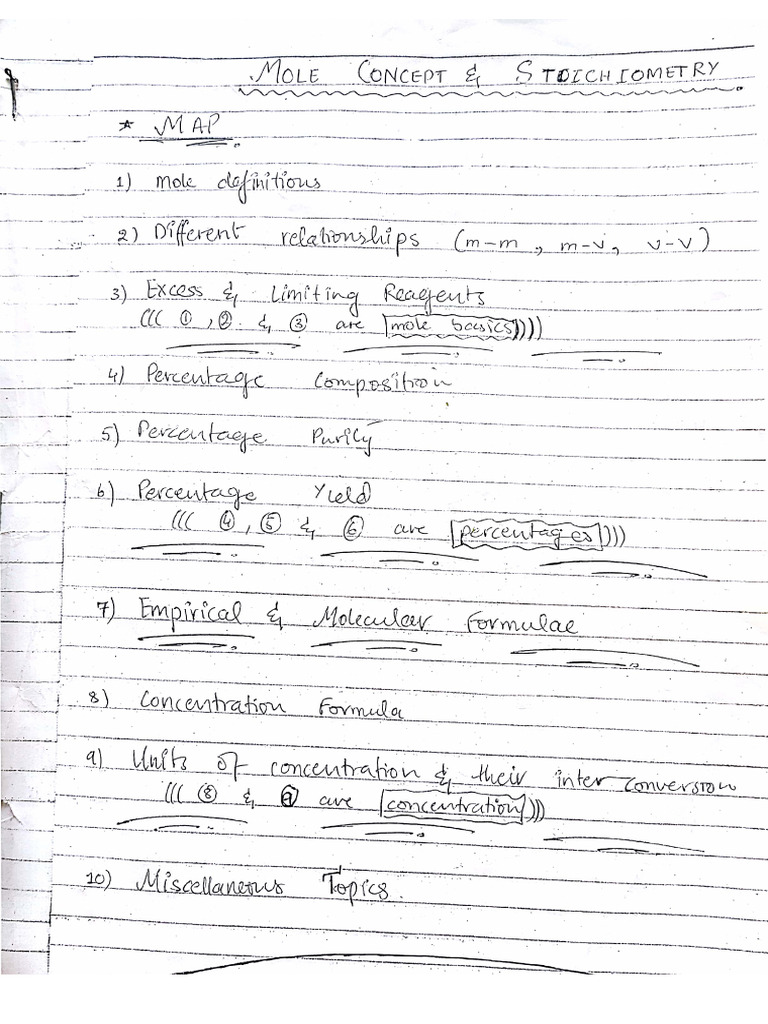 MOLE CONCEPT & STOICHIOMETRY
* MAP
1) Mole definitions
2) Different relationships (m-m, m-v, v-v)
3) Excess & Limiting Reagents
((( ①, ② & ③ are mole basics))))
4) Percentage Composition
5) Percentage Purity
6) Percentage Yield
((( ④, ⑤ & ⑥ are percentages))))
7) Empirical & Molecular Formulae
8) Concentration Formula
9) Units of concentration & their inter conversion
((( ⑧ & ⑨ are concentration))))
10) Miscellaneous Topics.